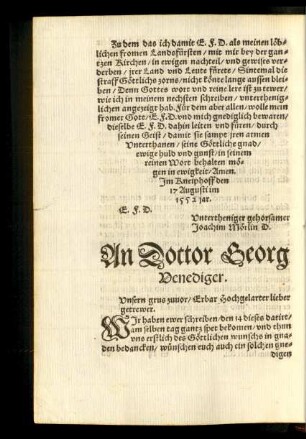 Zu dem das ich damit E. F. D. als meinen löb-
lichen fromen Landsfürsten / mit mir bey der gan-
tzen Kirchen / in ewigen nachteil / und gewisses ver-
derben / jrer Land und Leute fürete / Sintemal die
straff Göttlichs zorns / nicht könte lange aussen blei-
ben / Denn Gottes wort und reine lere ist zu tewer /
wie ich in meinem nechsten schreiben / untertheniglichen
angezeigt hab. Für dem aber allen / wolle mein
fromer Gott / E. F. D. und mich gnediglich bewaren /
dieselbe E. F. D. dahin leiten und füren / durch
seinen Geist / damit sie sampt jren armen
Unterthanen / seine Göttliche gnad /
ewige huld und gunst / in seinem
reinen Wort behalten mö-
gen in ewigkeit / Amen.
Im Kneiphoff den
17 Augusti im
1552 jar.
E. F. D.
Untertheniger gehorsamer
Joachim Mörlin D.
An Doctor Georg
Venediger.
Unsern grus zuuor / Erbar Hochgelarter lieber
getrewer.
WIr haben ewer schreiben / den 14 dieses datirt /
am selben tag gantz spet bekomen / und thun
uns erstlich des Göttlichen wunschs in gna-
den bedancken / wünschen euch auch ein solchen gne-
digen